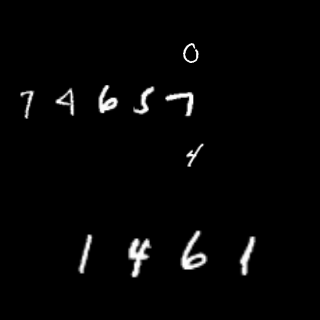 0
74657
4
1461